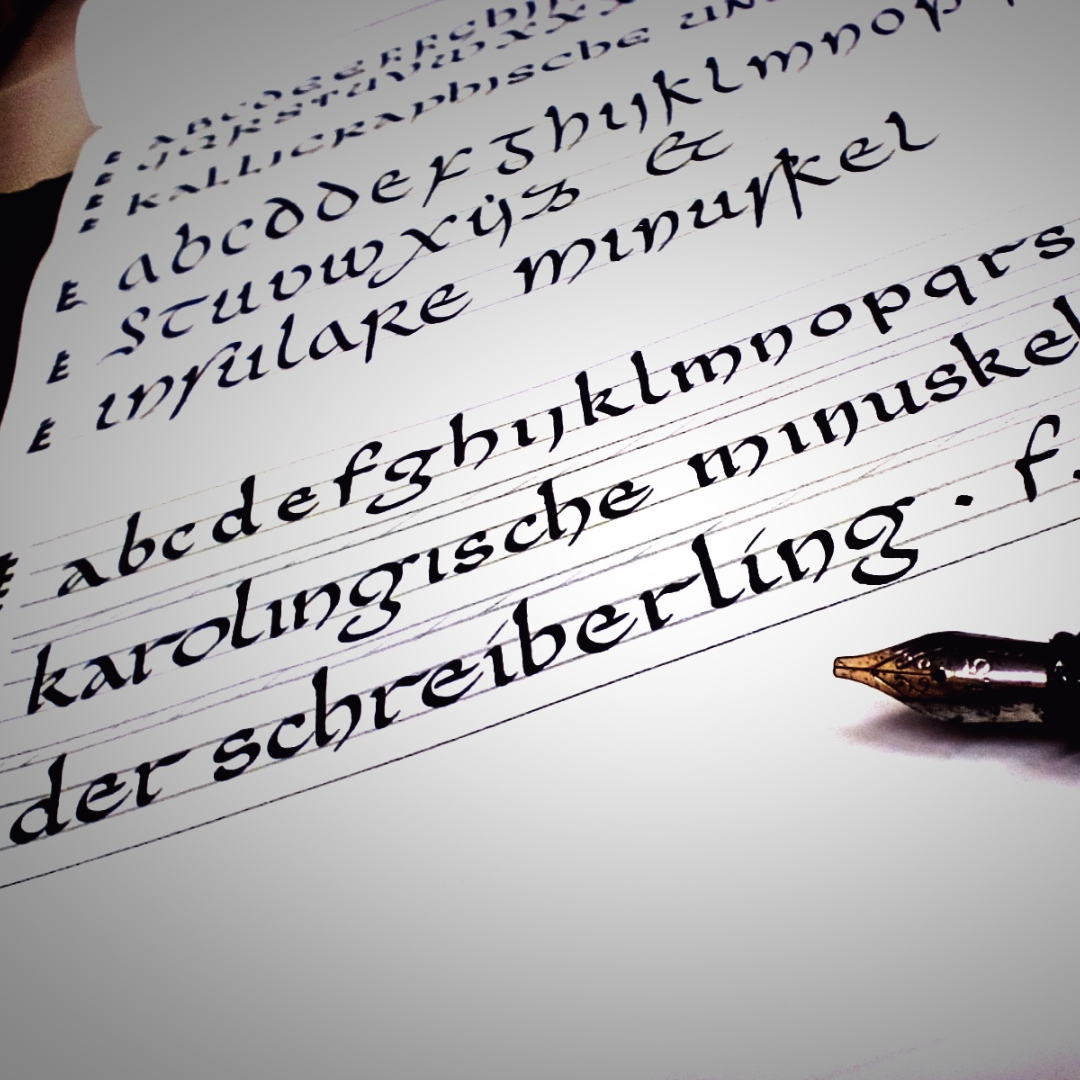 JQRSTUVWXXX
KALLIGRAPHISCHE UN
abcddefghijklmnop
STUVWXYZ &
insulare minuskel
abcdefghijklmnopqrs
karolingische minuskel
der schreiberling · f.